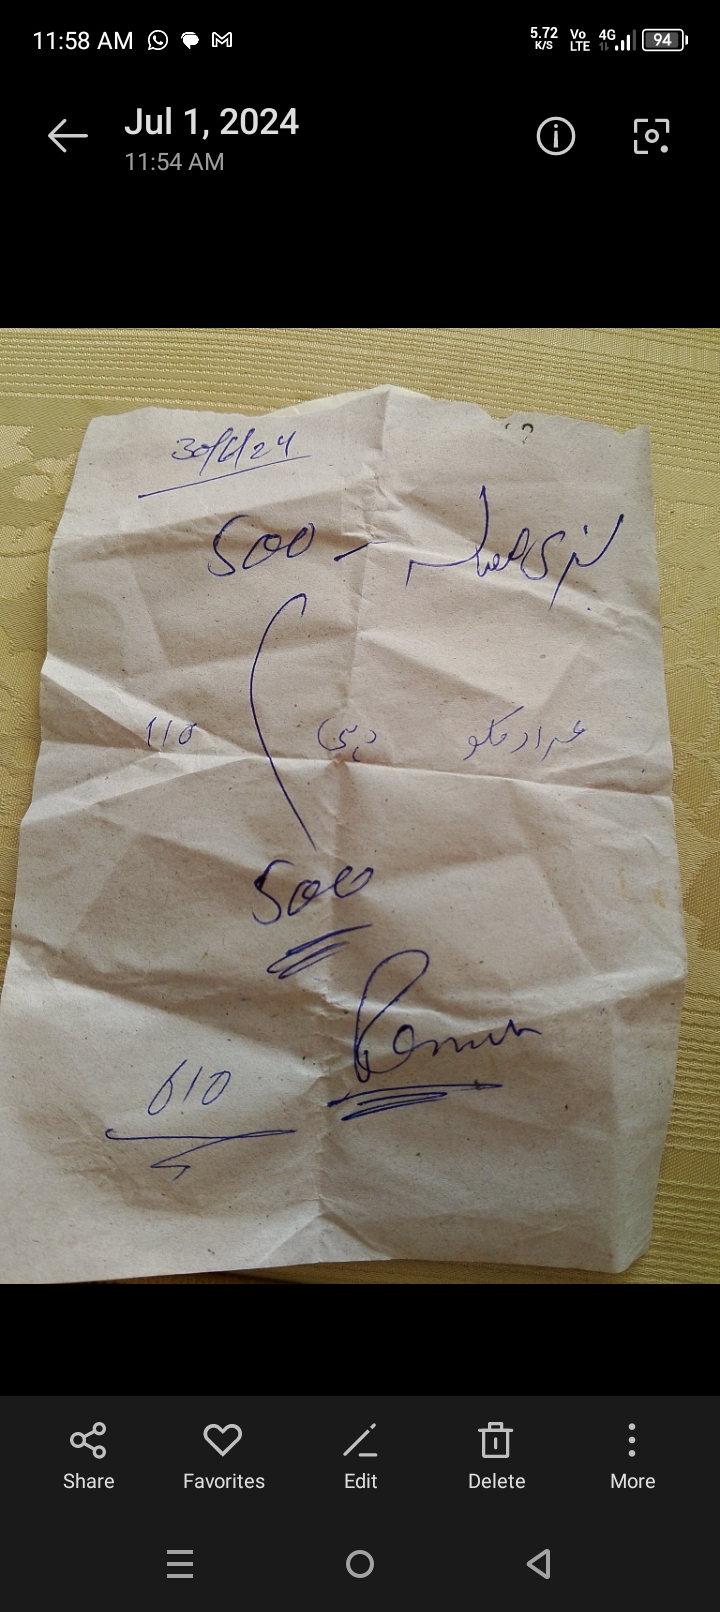 11:58 AM 5.72 K/S Vo LTE 4G 94
Jul 1, 2024
11:54 AM
30/6/24
500 -
110 دہی
500
610
Share Favorites Edit Delete More